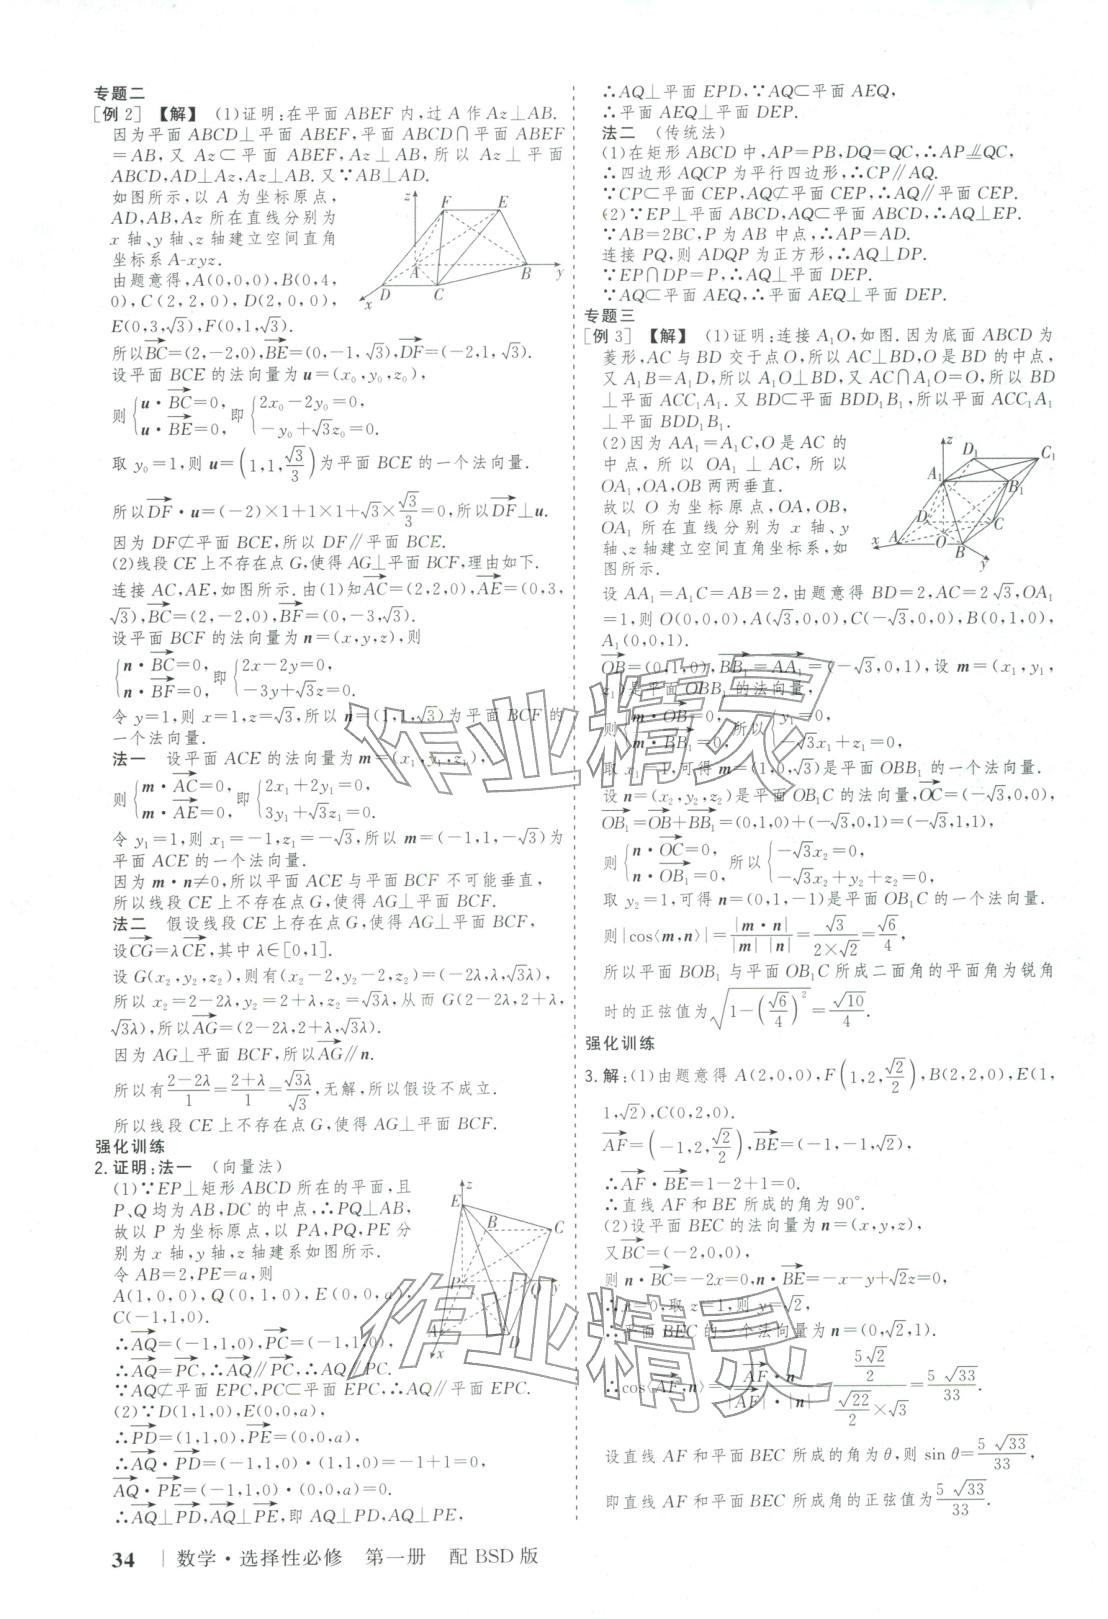 专题二
[例2] 【解】 (1)证明:在平面 ABEF 内,过 A 作 Az⊥AB.
因为平面 ABCD⊥平面 ABEF,平面 ABCD∩平面 ABEF
=AB,又 Az⊂平面 ABEF,所以 Az⊥平面
ABCD,AD⊥Az,AB⊥Az.又∵AB⊥AD.
如图所示,以 A 为坐标原点,
AD,AB,Az 所在直线分别为
x 轴、y 轴、z 轴建立空间直角
坐标系 A-xyz.
由题意得,A(0,0,0),B(0,4,
0),C(2,2,0),D(2,0,0),
E(0,3,√3),F(0,1,√3).
z
F
E
A
B
y
D
C
x
所以BC→=(2,-2,0),BE→=(0,-1,√3),DF→=(-2,1,√3).
设平面 BCE 的法向量为 u=(x₀,y₀,z₀),
则{u·BC→=0, u·BE→=0, 即{2x₀-2y₀=0, -y₀+√3z₀=0.
取 y₀=1,则 u=(1,1,√3/3)为平面 BCE 的一个法向量.
所以DF→·u=(-2)×1+1×1+√3×√3/3=0,所以DF→⊥u.
因为 DF⊄平面 BCE,所以 DF∥平面 BCE.
(2)线段 CE 上不存在点 G,使得 AG⊥平面 BCF,理由如下.
连接 AC,AE,如图所示.由(1)知AC→=(2,2,0),AE→=(0,3,
√3),BC→=(2,-2,0),BF→=(0,-3,√3).
设平面 BCF 的法向量为 n=(x,y,z),则
{n·BC→=0, n·BF→=0, 即{2x-2y=0, -3y+√3z=0.
令 y=1,则 x=1,z=√3,所以 n=(1,1,√3)为平面 BCF 的
一个法向量.
法一 设平面 ACE 的法向量为 m=(x₁,y₁,z₁),
则{m·AC→=0, m·AE→=0, 即{2x₁+2y₁=0, 3y₁+√3z₁=0.
令 y₁=1,则 x₁=-1,z₁=-√3,所以 m=(-1,1,-√3)为
平面 ACE 的一个法向量.
因为 m·n≠0,所以平面 ACE 与平面 BCF 不可能垂直,
所以线段 CE 上不存在点 G,使得 AG⊥平面 BCF.
法二 假设线段 CE 上存在点 G,使得 AG⊥平面 BCF,
设CG→=λCE→,其中 λ∈[0,1].
设 G(x₂,y₂,z₂),则有(x₂-2,y₂-2,z₂)=(-2λ,λ,√3λ),
所以 x₂=2-2λ,y₂=2+λ,z₂=√3λ,从而 G(2-2λ,2+λ,
√3λ),所以AG→=(2-2λ,2+λ,√3λ).
因为 AG⊥平面 BCF,所以AG→∥n.
所以有(2-2λ)/1=(2+λ)/1=√3λ/√3,无解,所以假设不成立.
所以线段 CE 上不存在点 G,使得 AG⊥平面 BCF.
强化训练
2.证明:法一 (向量法)
(1)∵EP⊥矩形 ABCD 所在的平面,且
P、Q 均为 AB,DC 的中点,∴PQ⊥AB,
故以 P 为坐标原点,以 PA,PQ,PE 分
别为 x 轴,y 轴,z 轴建系如图所示.
令 AB=2,PE=a,则
A(1,0,0),Q(0,1,0),E(0,0,a),
C(-1,1,0).
z
E
B
C
P
Q
y
A
D
x
∴AQ→=(-1,1,0),PC→=(-1,1,0),
∴AQ→=PC→,∴AQ→∥PC→,∴AQ∥PC.
∵AQ⊄平面 EPC,PC⊂平面 EPC,∴AQ∥平面 EPC.
(2)∵D(1,1,0),E(0,0,a),
∴PD→=(1,1,0),PE→=(0,0,a),
∴AQ→·PD→=(-1,1,0)·(1,1,0)=-1+1=0,
AQ→·PE→=(-1,1,0)·(0,0,a)=0.
∴AQ→⊥PD→,AQ→⊥PE→,即 AQ⊥PD,AQ⊥EP,
∴AQ⊥平面 EPD,∵AQ⊂平面 AEQ,
∴平面 AEQ⊥平面 DEP.
法二 (传统法)
(1)在矩形 ABCD 中,AP=PB,DQ=QC,∴AP⫽QC,
∴四边形 AQCP 为平行四边形,∴CP∥AQ.
∵CP⊂平面 CEP,AQ⊄平面 CEP,∴AQ∥平面 CEP.
(2)∵EP⊥平面 ABCD,AQ⊂平面 ABCD,∴AQ⊥EP.
∵AB=2BC,P 为 AB 中点,∴AP=AD.
连接 PQ,则 ADQP 为正方形,∴AQ⊥DP.
∵EP∩DP=P,∴AQ⊥平面 DEP.
∵AQ⊂平面 AEQ,∴平面 AEQ⊥平面 DEP.
专题三
[例3] 【解】 (1)证明:连接 A₁O,如图.因为底面 ABCD 为
菱形,AC 与 BD 交于点 O,所以 AC⊥BD,O 是 BD 的中点,
又 A₁B=A₁D,所以 A₁O⊥BD,又 AC∩A₁O=O,所以 BD
⊥平面 ACC₁A₁.又 BD⊂平面 BDD₁B₁,所以平面 ACC₁A₁
⊥平面 BDD₁B₁.
(2)因为 AA₁=A₁C,O 是 AC 的
中点,所以 OA₁⊥AC,所以
OA₁,OA,OB 两两垂直.
故以 O 为坐标原点,OA,OB,
OA₁ 所在直线分别为 x 轴、y
轴、z 轴建立空间直角坐标系,如
图所示.
z
D₁
C₁
A₁
B₁
D
C
A
O
B
x
y
设 AA₁=A₁C=AB=2,由题意得 BD=2,AC=2√3,OA₁
=1,则 O(0,0,0),A(√3,0,0),C(-√3,0,0),B(0,1,0),
A₁(0,0,1).
OB→=(0,1,0),BB₁→=AA₁→=(-√3,0,1),设 m=(x₁,y₁,
z₁)是平面 OBB₁ 的法向量,
则{m·OB→=0, m·BB₁→=0, 所以{y₁=0, -√3x₁+z₁=0.
取 x₁=1,可得 m=(1,0,√3)是平面 OBB₁ 的一个法向量.
设 n=(x₂,y₂,z₂)是平面 OB₁C 的法向量,OC→=(-√3,0,0),
OB₁→=OB→+BB₁→=(0,1,0)+(-√3,0,1)=(-√3,1,1),
则{n·OC→=0, n·OB₁→=0, 所以{-√3x₂=0, -√3x₂+y₂+z₂=0,
取 y₂=1,可得 n=(0,1,-1)是平面 OB₁C 的一个法向量.
则|cos⟨m,n⟩|=|m·n|/(|m||n|)=√3/(2×√2)=√6/4,
所以平面 BOB₁ 与平面 OB₁C 所成二面角的平面角为锐角
时的正弦值为√(1-(√6/4)²)=√10/4.
强化训练
3.解:(1)由题意得 A(2,0,0),F(1,2,√2/2),B(2,2,0),E(1,
1,√2),C(0,2,0).
AF→=(-1,2,√2/2),BE→=(-1,-1,√2),
∴AF→·BE→=1-2+1=0.
∴直线 AF 和 BE 所成的角为 90°.
(2)设平面 BEC 的法向量为 n=(x,y,z),
又BC→=(-2,0,0),
则 n·BC→=-2x=0,n·BE→=-x-y+√2z=0,
∴x=0,取 z=1,则 y=√2,
∴平面 BEC 的一个法向量为 n=(0,√2,1).
∴cos⟨AF→,n⟩=AF→·n/(|AF→|·|n|)=(5√2/2)/(√22/2×√3)=5√33/33.
设直线 AF 和平面 BEC 所成的角为 θ,则 sin θ=5√33/33,
即直线 AF 和平面 BEC 所成角的正弦值为5√33/33.
作业精灵
作业精灵
34 | 数学·选择性必修 第一册 配 BSD 版